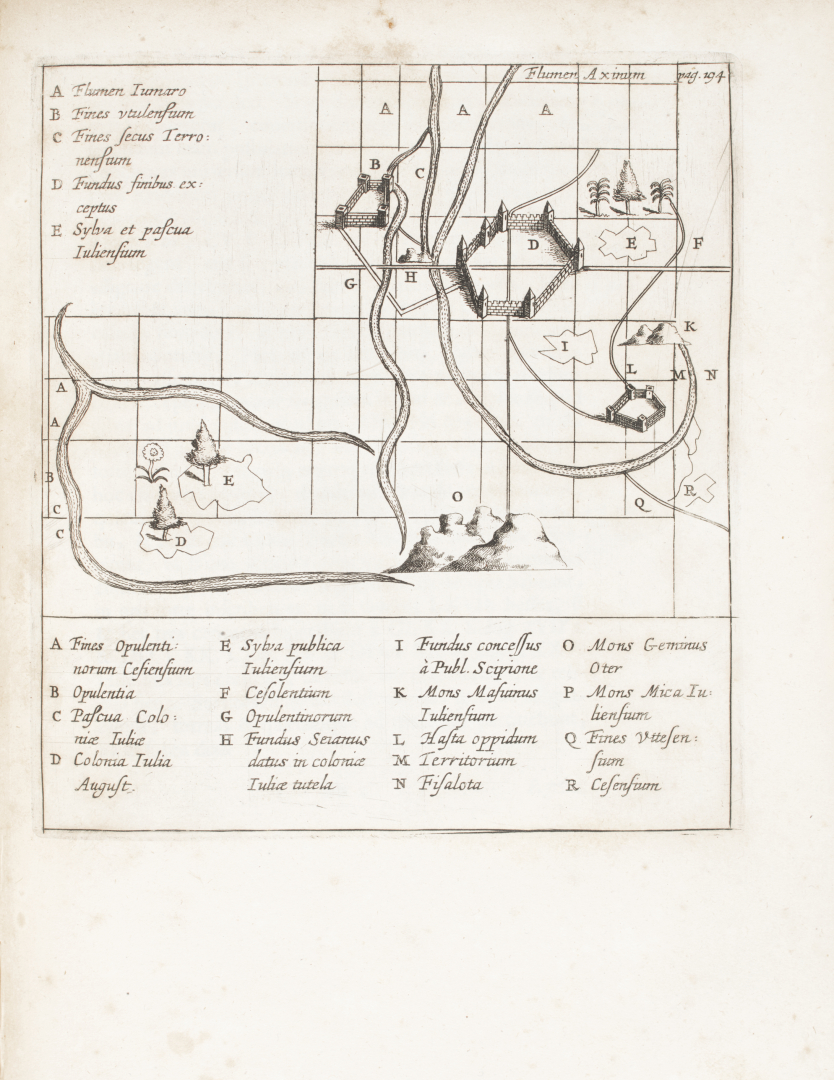 Flumen Axinum
pag. 194
A Flumen Iumaro
B Fines vtulenſium
C Fines ſecus Terro:
nenſium
D Fundus finibus ex:
ceptus
E Sylva et paſcua
Iulienſium
A
A
A
B
C
D
E
F
G
H
I
K
L
M
N
A
A
B
C
C
E
D
O
Q
R
A Fines Opulenti:
norum Ceſienſium
B Opulentia
C Paſcua Colo:
niæ Iuliæ
D Colonia Iulia
Auguſt.
E Sylva publica
Iulienſium
F Ceſolentium
G Opulentinorum
H Fundus Seianus
datus in coloniæ
Iuliæ tutela
I Fundus conceſſus
à Publ. Scipione
K Mons Maſianus
Iulienſium
L Haſta oppidum
M Territorium
N Fiſalota
O Mons Geminus
Oter
P Mons Mica Iu:
lienſium
Q Fines Vtteſen:
ſium
R Ceſenſium